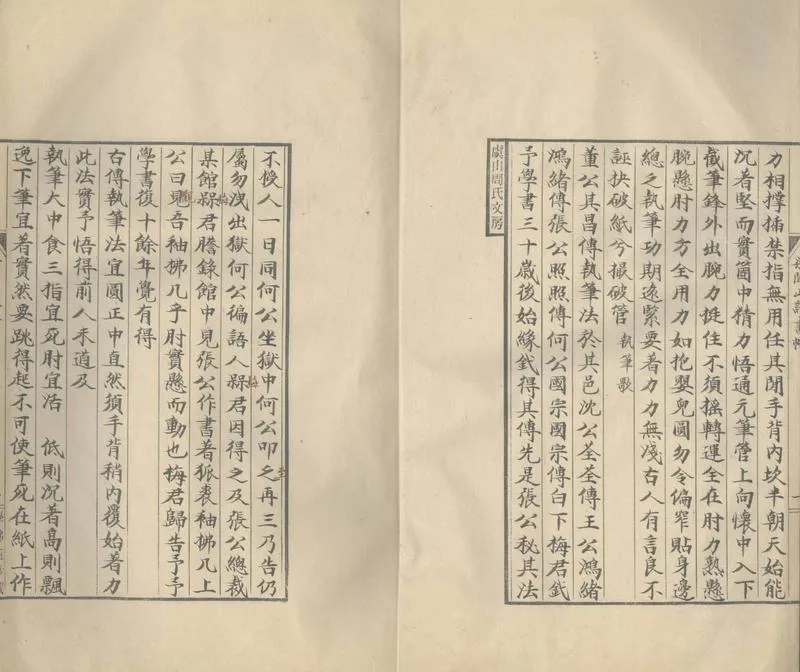 力相撐插禁指無用任其閒手背內坎半朝天始能
沉着堅而實箇中猜力悟通元筆管上向懷中入下
截筆鋒外出腕力挺住不須搖轉運全在肘力熟懸
腕懸肘力方全用力如抱嬰兒圓勿令偏窄貼身邊
總之執筆功期逸緊要着力力無淺古人有言良不
誣抉破紙兮撮破管 執筆歌
董公其昌傳執筆法於其邑沈公荃荃傳王公鴻緒
鴻緒傳張公照照傳何公國宗國宗傳白下梅君釴
予學書三十歲後始緣釴得其傳先是張公秘其法
虞山周氏文房
不授人一日同何公坐獄中何公叩之再三乃告仍
屬勿洩出獄何公徧語人槑君因得之及張公總裁
某館槑君謄錄館中見張公作書著狐裘袖拂几上
公曰見吾袖拂几乎肘實懸而動也梅君歸告予予
學書復十餘年覺有得
右傳執筆法宜圓正中直然須手背稍內覆始着力
此法實予悟得前人未道及
執筆大中食三指宜死肘宜活 低則沉着高則飄
逸下筆宜着實然要跳得起不可使筆死在紙上作